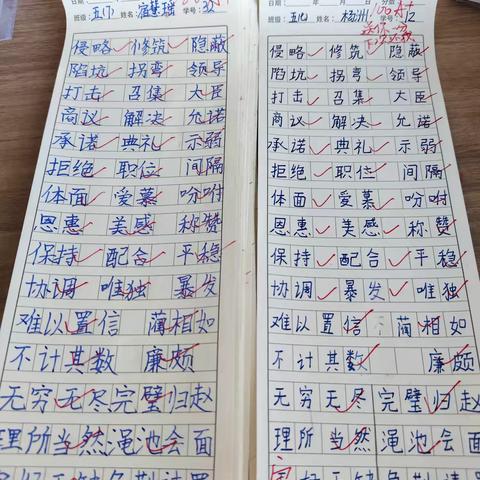 日期: 年 月 日 分数: 100 好
班级: 五(1) 姓名: 学号: 32
侵略 修筑 隐蔽
陷坑 拐弯 领导
打击 召集 大臣
商议 解决 允诺
承诺 典礼 示弱
拒绝 职位 间隔
体面 爱慕 吩咐
恩惠 美感 称赞
保持 配合 平稳
协调 唯独 暴发
难以置信 蔺相如
不计其数 廉颇
无穷无尽 完璧归赵
理所当然 渑池会面
年 月 日 分数: 100
班级: 五(1) 姓名: 杨洲 学号: 12
侵略 修筑 隐蔽
陷坑 拐弯 领导
打击 召集 大臣
商议 解决 允诺
承诺 典礼 示弱
拒绝 职位 间隔
体面 爱慕 吩咐
恩惠 美感 称赞
保持 配合 平稳
协调 暴发 唯独
难以置信 蔺相如
不计其数 廉颇
无穷无尽 完璧归赵
理所当然 渑池会面